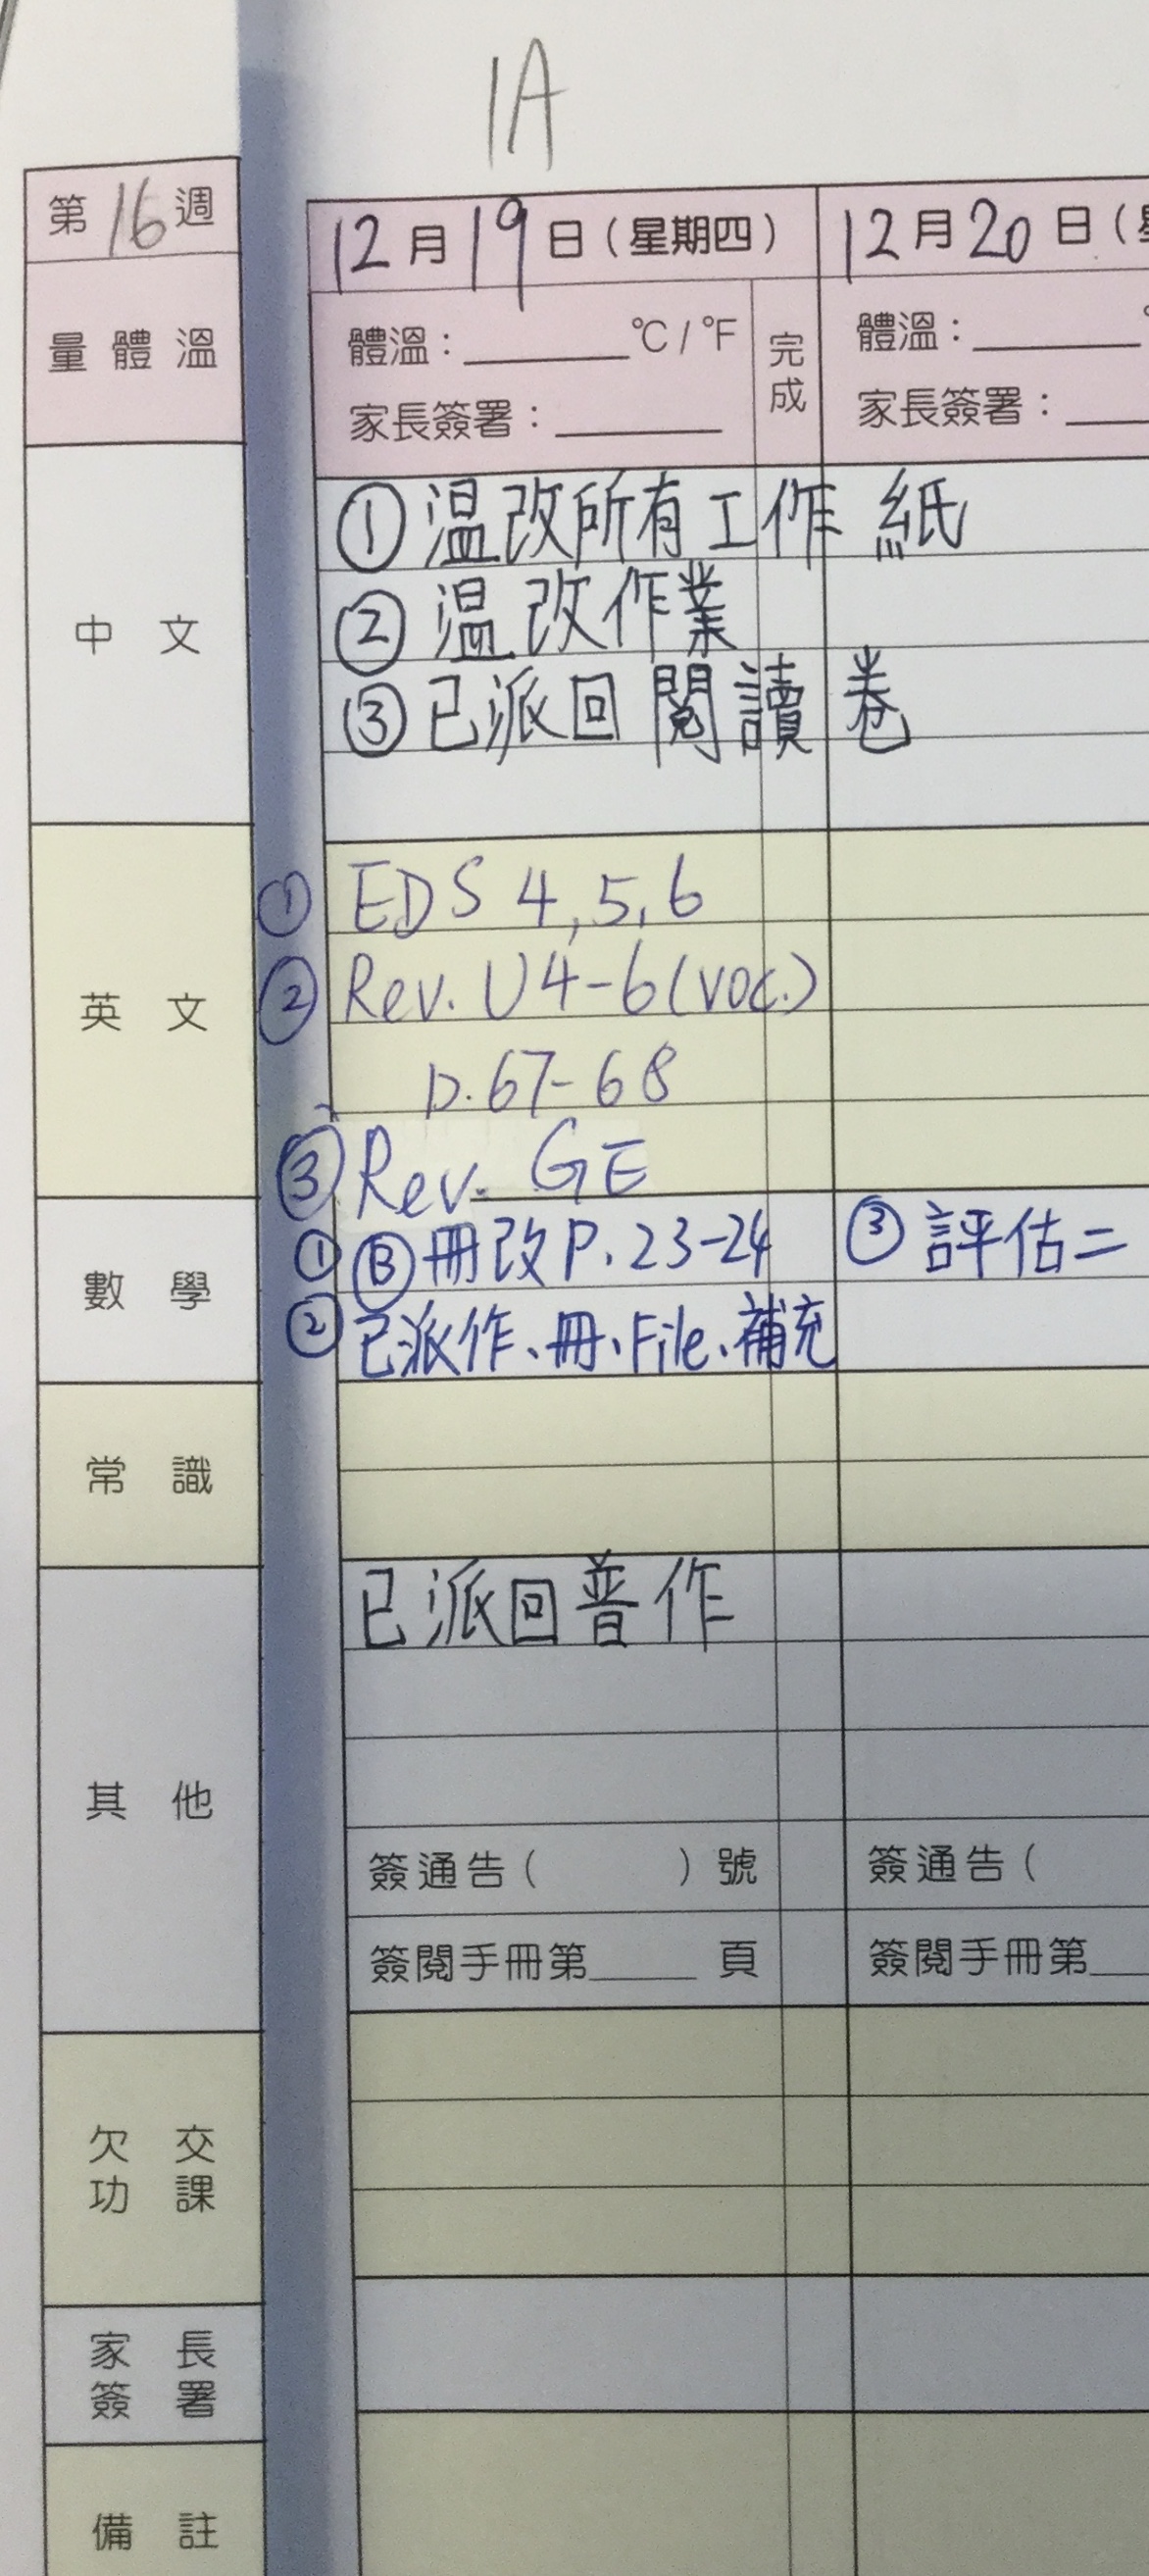 1A
第16週
12月19日(星期四)
12月20日(
量體溫
體溫:______°C/°F
完成
體溫:______
家長簽署:______
家長簽署:
中文
①温改所有工作紙
②温改作業
③已派回閱讀卷
英文
① EDS 4,5,6
② Rev. U4-6(voc.)
p.67-68
③ Rev. GE
數學
① Ⓑ冊改P.23-24
③評估二
②已派作、冊、File、補充
常識
其他
已派回普作
簽通告( )號
簽通告(
簽閱手冊第____頁
簽閱手冊第
欠交
功課
家長
簽署
備註